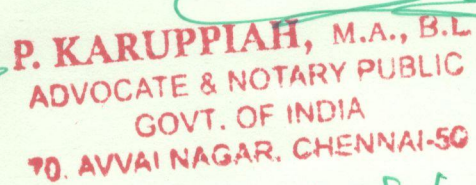 P. KARUPPIAH, M.A., B.L
ADVOCATE & NOTARY PUBLIC
GOVT. OF INDIA
70. AVVAI NAGAR. CHENNAI-50